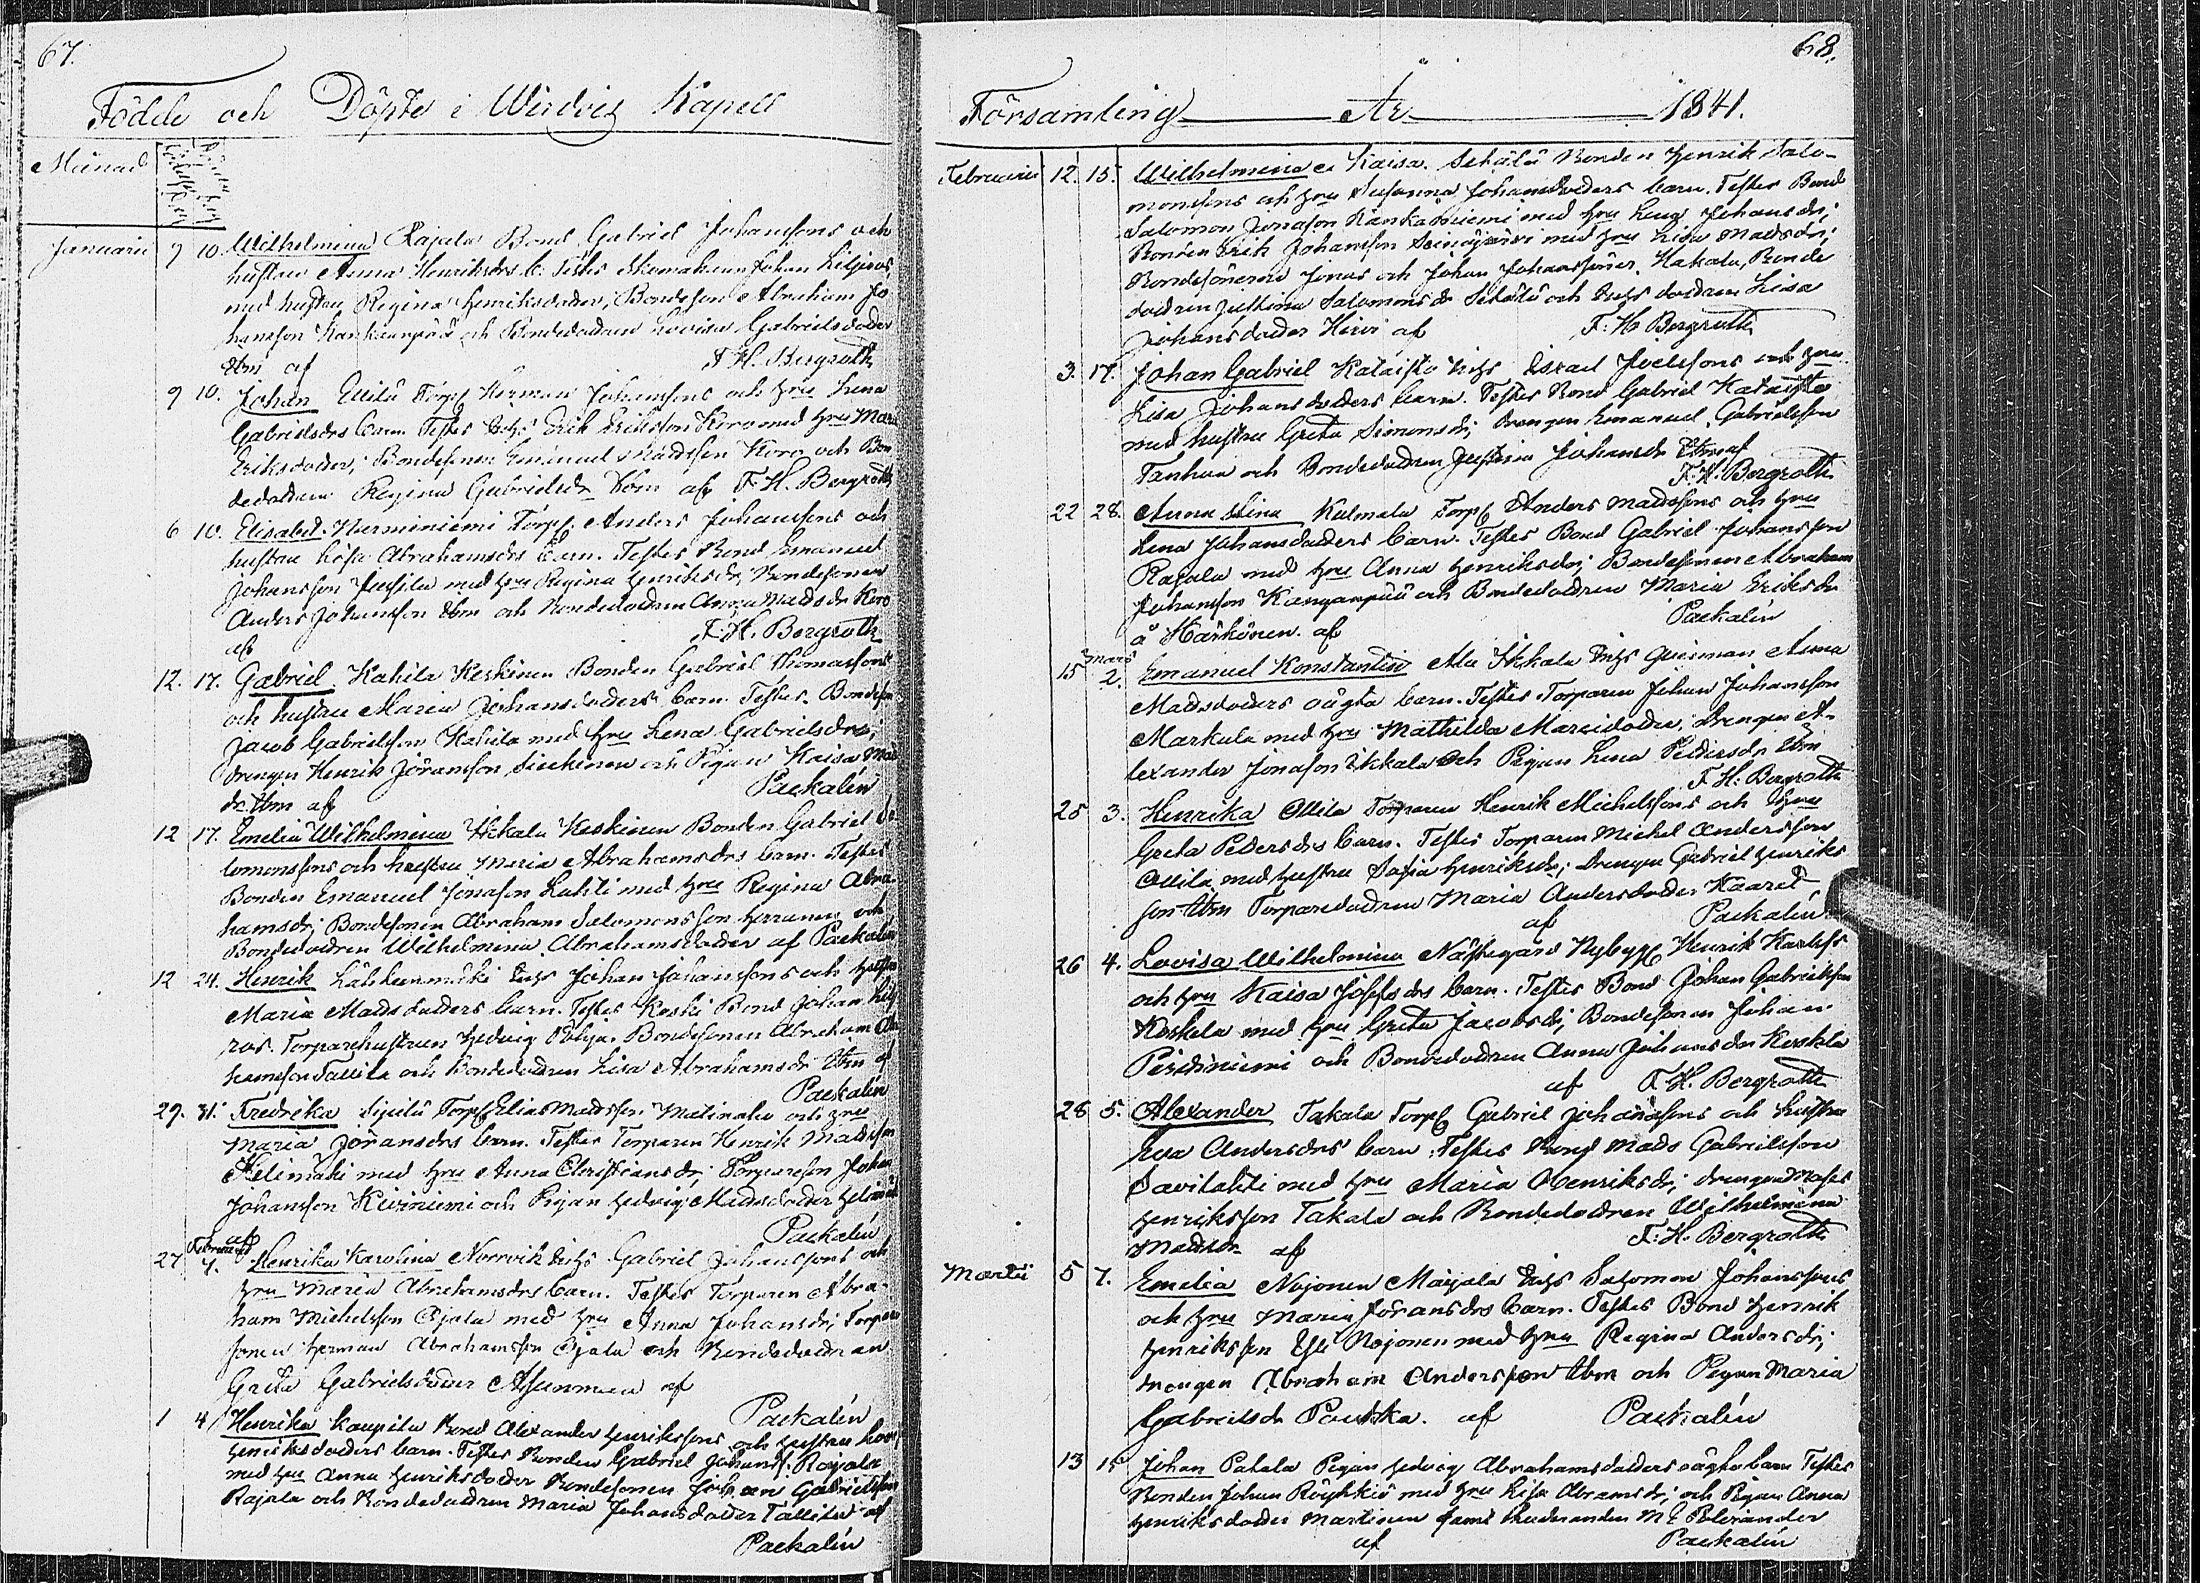 67.
Födde och Döpte i Wirdois Kapell
Månad
Januarii 9 10. Wilhelmina Rajala Bond Gabriel Johanssons och
hustru Anna Henriksdrs b. Testes Johan Liljeros
med hustru Regina Henriksdoder, Bondeson Abraham Jo
hansson Kankaanpää och Bondedottren Lovisa Gabrielsdoder
ibm af F. H. Bergroth
9 10. Johan Torp Herman Johanssons och hru Lena
Gabrielsdrs barn. Testes Inhs Erik Eriksson Koro med hru Mari
Eriksdoder, Bondesonen Emanuel Mattsson Koro och Bon
dedottren Regina Gabrielsdr ibm af F. H. Bergroth
6 10. Elisabet Herminiemi Torp Anders Johanssons och
hustru Lisa Abrahamsdrs barn. Testes Bond Emanuel
Johansson med hru Regina Henriksdr, Bondesonen
Anders Johansson ibm och Bondedottren Anna Madsdr Koro
af F. H. Bergroth
12. 17. Gabriel Kahila Keskinen Bonden Gabriel Thomassons
och hustru Maria Johansdoders barn. Testes Bondeson
Jacob Gabrielsson Kahila med hru Lena Gabrielsdr,
Drengen Henrik Jöransson och Pigan Kaisa Mads
dr ibm af Paekalén
12 17. Emelia Wilhelmina Ikkala Keskinen Bonden Gabriel Sa
lomonssons och hustru Maria Abrahamsdrs barn. Testes
Bonden Emanuel Jonasson Lahti med hru Regina Abra
hamsdr, Bondesonen Abraham Salomonsson Herranen och
Bondedottren Wilhelmina Abrahamsdoder af Paekalén
12 24. Henrik Inhs Johan Johanssons och hustru
Maria Madsdoders barn. Testes Koski Bond Johan Lilj
ros. Torparehustrun Hedvig Pohja. Bondesonen Abraham Abra
hamsson Tallila och Bondedottren Lisa Abrahamsdr ibm af
Paekalén
29. 31. Fredrika Sipilä Torp Elias Madsson Matinaho och hru
Maria Jöransdrs barn. Testes Torparen Henrik Mattsson
med hru Anna Christiansdr, Torpareson Johan
Johansson Kiviniemi och Pigan Hedvig Madsdoder
af Paekalén
27 Februarii 7. Henrika Karolina Norrvik Inhs Gabriel Johanssons och
hru Maria Abrahamsdrs barn. Testes Torparen Abra
ham Michelsson Ojala med hru Anna Johansdr, Torpare
sonen Herman Abrahamsson Ojala och Bondedottren
Greta Gabrielsdoder Asunmaa af
Paekalén
1 4 Henrika Kaupila Bond Alexander Henrikssons och hustru
Henriksdoders barn. Testes Bonden Gabriel Johanss. Rajala
med hru Anna Henriksdoder Bondesonen Johan Gabrielsson
Rajala och Bondedottren Maria Johansdoder Tallila af
Paekalén
68.
Församling År 1841.
Februarii 12. 15. Wilhelmina Kaisa. Setälä Bonden Henrik Salo-
monssons och hru Susanna Johansdoders barn. Testes Bond
Salomon Jonasson med hru Lena Johansdr,
Bonden Erik Johansson Seinäjärvi med hru Lisa Madsdr,
Bondesönerne Jonas och Johan Johanssöner Hakala, Bonde
dottren Salomonsdr Setälä och Inhs dottren Lisa
Johansdoder Hirvi af F. H. Bergroth
3. 17. Johan Gabriel Kataisto Inhs Israel Joelssons och hru
Lisa Johansdoders barn. Testes Bond Gabriel Kataisto
med hustru Greta Simonsdr, Drengen Emanuel Gabrielsson
Tanhua och Bondedottren Justina Johansdr ibm af
F. H. Bergroth
22 28. Anna Stina Kulmala Torp Anders Madssons och hru
Lena Johansdoders barn. Testes Bond Gabriel Johansson
Rajala med hru Anna Henriksdr, Bondesonen Abraham
Johansson Kangaspää och Bondedottren Maria Eriksdr
å Härkönen. af Paekalén
15 Mars 2. Emanuel Konstantin Ala Ikkala Inhs qvinnan Anna
Madsdoders oägta barn. Testes Torparen Johan Johansson
Markula med hru Mathilda Mareisdoder, Drengen A-
lexander Jonasson Ikkala och Pigan Lena Pedersdr ibm
F. H. Bergroth
25 3. Henrika Ollila Torparen Henrik Michelssons och hru
Greta Pedersdrs barn. Testes Torparen Michel Andersson
Ollila med hustru Sofia Henriksdr, Drengen Gabriel Henriks
son ibm Torparedottren Maria Andersdoder
af Paekalén
26 4. Lovisa Wilhelmina Nybygg Henrik
och hru Kaisa Josefsdrs barn. Testes Bond Johan Gabrielsson
Koskela med hru Greta Jacobsdr, Bondesonen Johan
och Bondedottren Anna Johansdr Koskela
af F. H. Bergroth
28 5. Alexander Takala Torp Gabriel Johanssons och hustru
Eva Andersdrs barn. Testes Bond Mads Gabrielsson
Savilahti med hru Maria Henriksdr, Drengen Moses
Henriksson Takala och Bondedottren Wilhelmina
Madsdr af F. H. Bergroth
Martii 5 7. Emelia Nojonen Marjala Inhs Salomon Johanssons
och hru Maria Jöransdrs barn. Testes Bond Henrik
Henriksson Yli Nojonen med hru Regina Andersdr,
Drengen Abraham Andersson ibm och Pigan Maria
Gabrielsdr Poukka. af Paekalén
13 15 Johan Patala Pigan Hedvig Abrahamsdoders oägta barn Testes
Bonden Johan Röyhkiö med hru Lisa Abramsdr, och Pigan Anna
Henriksdoder Martinen samt Studeranden M E Polviander
af Paekalén